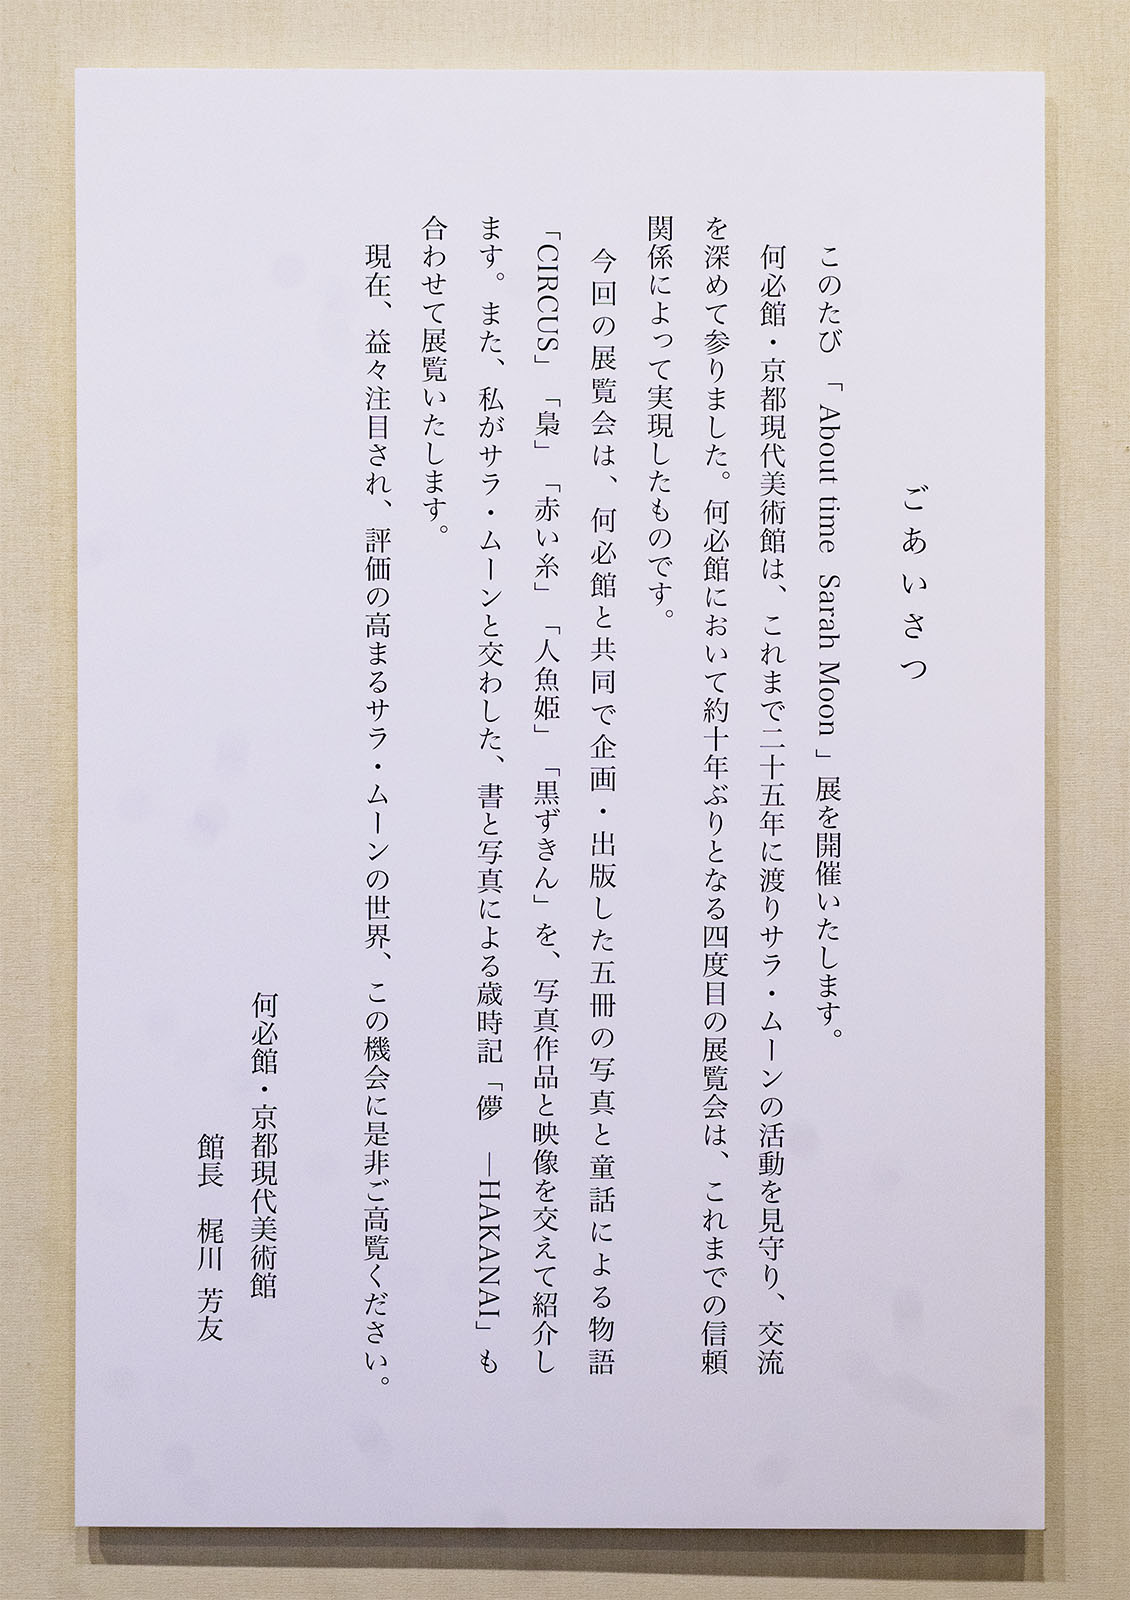 ごあいさつ
このたび「About time Sarah Moon」展を開催いたします。
何必館・京都現代美術館は、これまで二十五年に渡りサラ・ムーンの活動を見守り、交流
を深めて参りました。何必館において約十年ぶりとなる四度目の展覧会は、これまでの信頼
関係によって実現したものです。
今回の展覧会は、何必館と共同で企画・出版した五冊の写真と童話による物語
「CIRCUS」「梟」「赤い糸」「人魚姫」「黒ずきん」を、写真作品と映像を交えて紹介し
ます。また、私がサラ・ムーンと交わした、書と写真による歳時記「儚 ―HAKANAI」も
合わせて展覧いたします。
現在、益々注目され、評価の高まるサラ・ムーンの世界、この機会に是非ご高覧ください。
何必館・京都現代美術館
館長 梶川 芳友